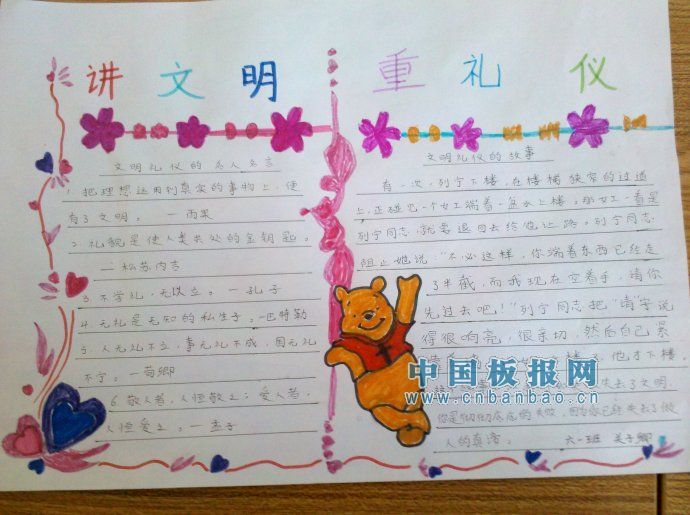 讲文明 重礼仪
文明礼仪的名人名言
1. 把理想运用到真实的事物上，便
有了文明。 —雨果
2. 礼貌是使人类共处的金钥匙。
—松苏内吉
3. 不学礼，无以立。 —孔子
4. 无礼是无知的私生子。—巴特勒
5. 人无礼不立，事无礼不成，国无礼
不宁。 —荀卿
6. 敬人者，人恒敬之；爱人者，
人恒爱之。—孟子
文明礼仪的故事
有一次，列宁下楼，在楼梯狭窄的过道
上，正碰见一个女工端着一盆水上楼。那女工一看是
列宁同志，就要退回去给他让路。列宁同志
阻止她说："不必这样，你端着东西已经走
了半截，而我现在空着手，请你
先过去吧！"列宁同志把"请"字说
得很响亮，很亲切。然后自己紧
楼了，他才下楼。
失去了文明
你是彻彻底底的失败，因为你已经失去了做
人的真谛。
六一班
中国板报网
www.cnbanbao.cn